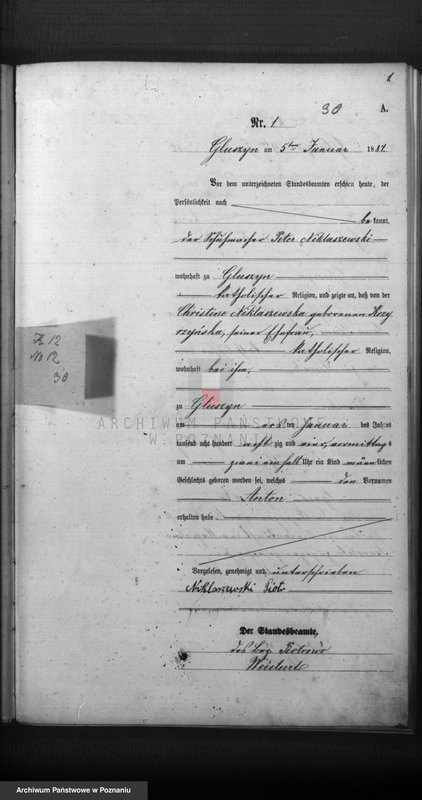 1
30 A.
Nr. 1
Gluszyn am 5ten Januar 1884.
Vor dem unterzeichneten Standesbeamten erschien heute, der
Persönlichkeit nach
bekannt,
der Schuhmacher Peter Niklaszewski
wohnhaft zu Gluszyn
katholischer Religion, und zeigte an, daß von der
Christine Niklaszewska geborenen
seiner Ehefrau,
katholischer Religion,
wohnhaft bei ihm,
zu Gluszyn
am ersten Januar des Jahres
tausend acht hundert achtzig und vier, vormittags
um zwei einhalb Uhr ein Kind männlichen
Geschlechts geboren worden sei, welches den Vornamen
Anton
erhalten habe.
Vorgelesen, genehmigt und unterschrieben
Niklaszewski Piotr
Der Standesbeamte,
des Bez. Piotrowo
A 12
No 12
30
ARCHIWUM PAŃSTWOWE
W POZNANIU
Archiwum Państwowe w Poznaniu